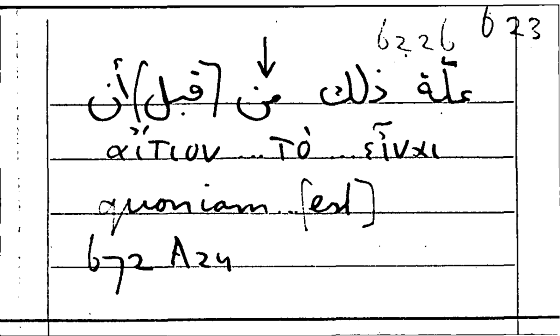 6226 623
↓
علّة ذلك من [قبل] أن
αἴτιον...τὸ...εἶναι
quoniam...[est]
672 A24